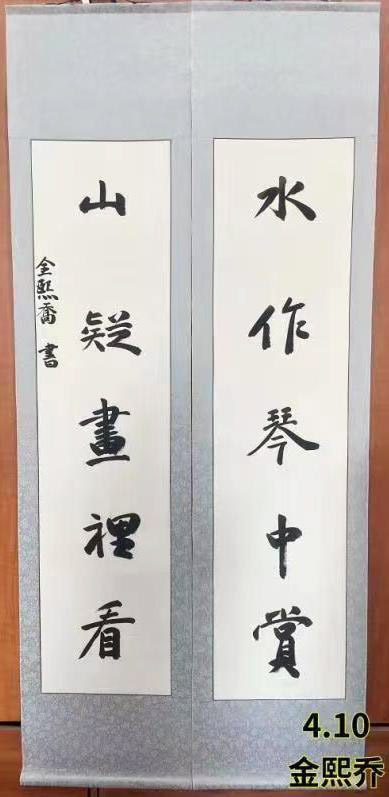 水作琴中賞
山疑畫裡看
金熙喬 書
4.10
金熙乔